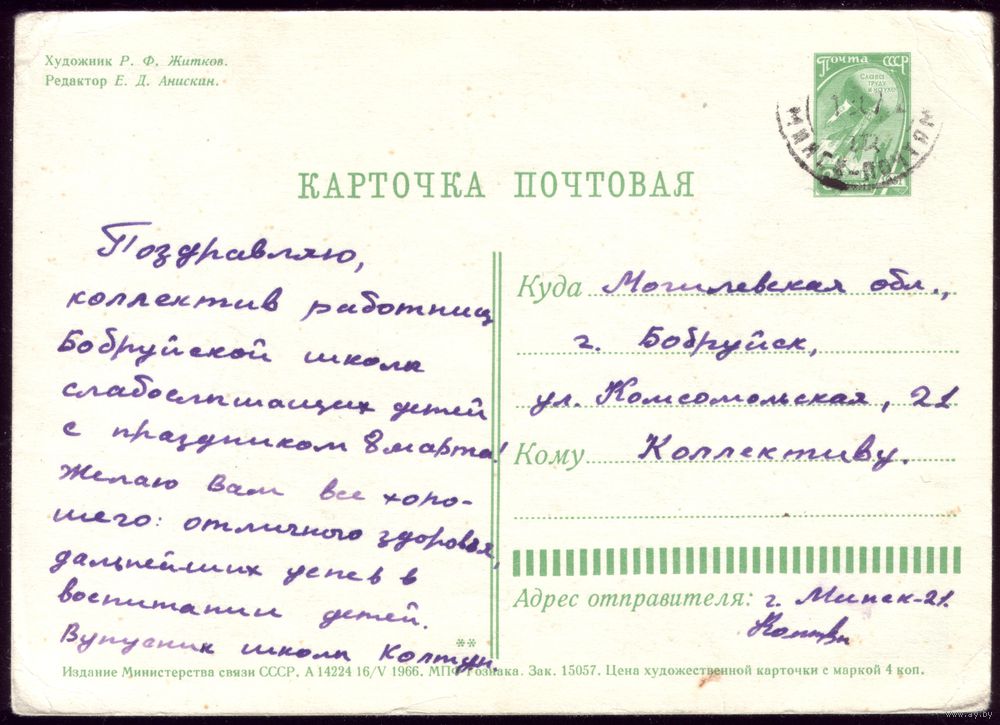 Художник Р. Ф. Житков.
Редактор Е. Д. Анискин.
Почта СССР
СЛАВА
ТРУДУ
И НАУКЕ
КАРТОЧКА ПОЧТОВАЯ
Поздравляю,
коллектив работниц
Бобруйской школы
слабослышащих детей
с праздником 8 марта!
Желаю Вам все хоро-
шего: отличного здоровья,
дальнейших успев в
воспитании детей.
Вупусник школы Колтун.
Куда Могилевская обл.,
г. Бобруйск,
ул. Комсомольская, 21
Кому Коллективу.
Адрес отправителя: г. Минск-21.
**
Издание Министерства связи СССР. А 14224 16/V 1966. МПФ Гознака. Зак. 15057. Цена художественной карточки с маркой 4 коп.
www.ay.by